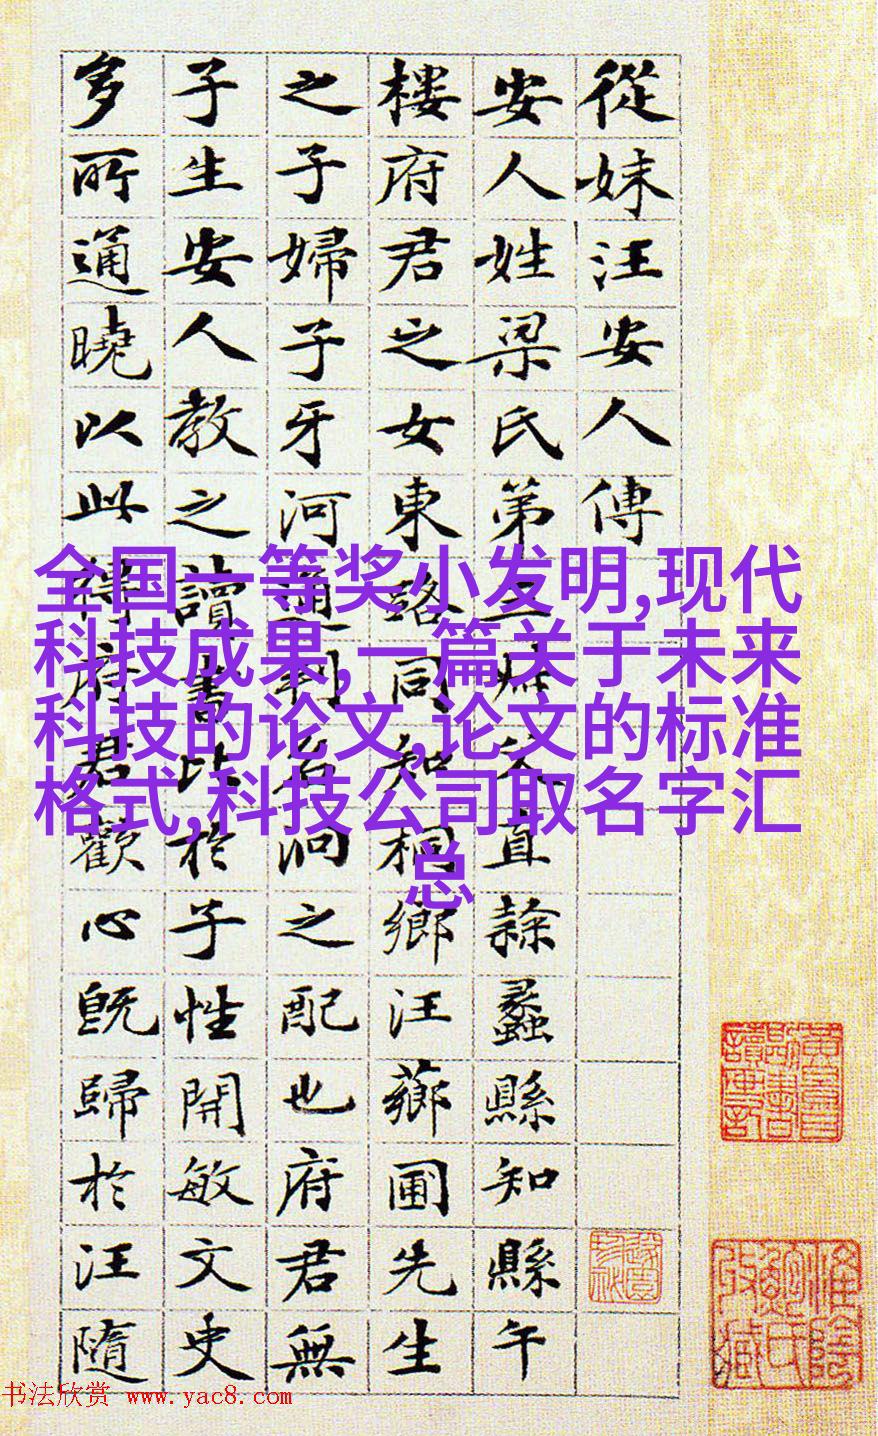 從妹汪安人傳
安人姓梁氏第父直隸蠡縣知縣午
樓府君之女東路同知桐鄉汪薌圃先生
之子婦子牙河通判名泂之配也府君無
子生安人教之讀書比於子性開敏文史
多所通曉以此得府君歡心既歸於汪隨
全国一等奖小发明,现代
科技成果,一篇关于未来
科技的论文,论文的标准
格式,科技公司取名字汇
总
书法欣赏 www.yac8.com